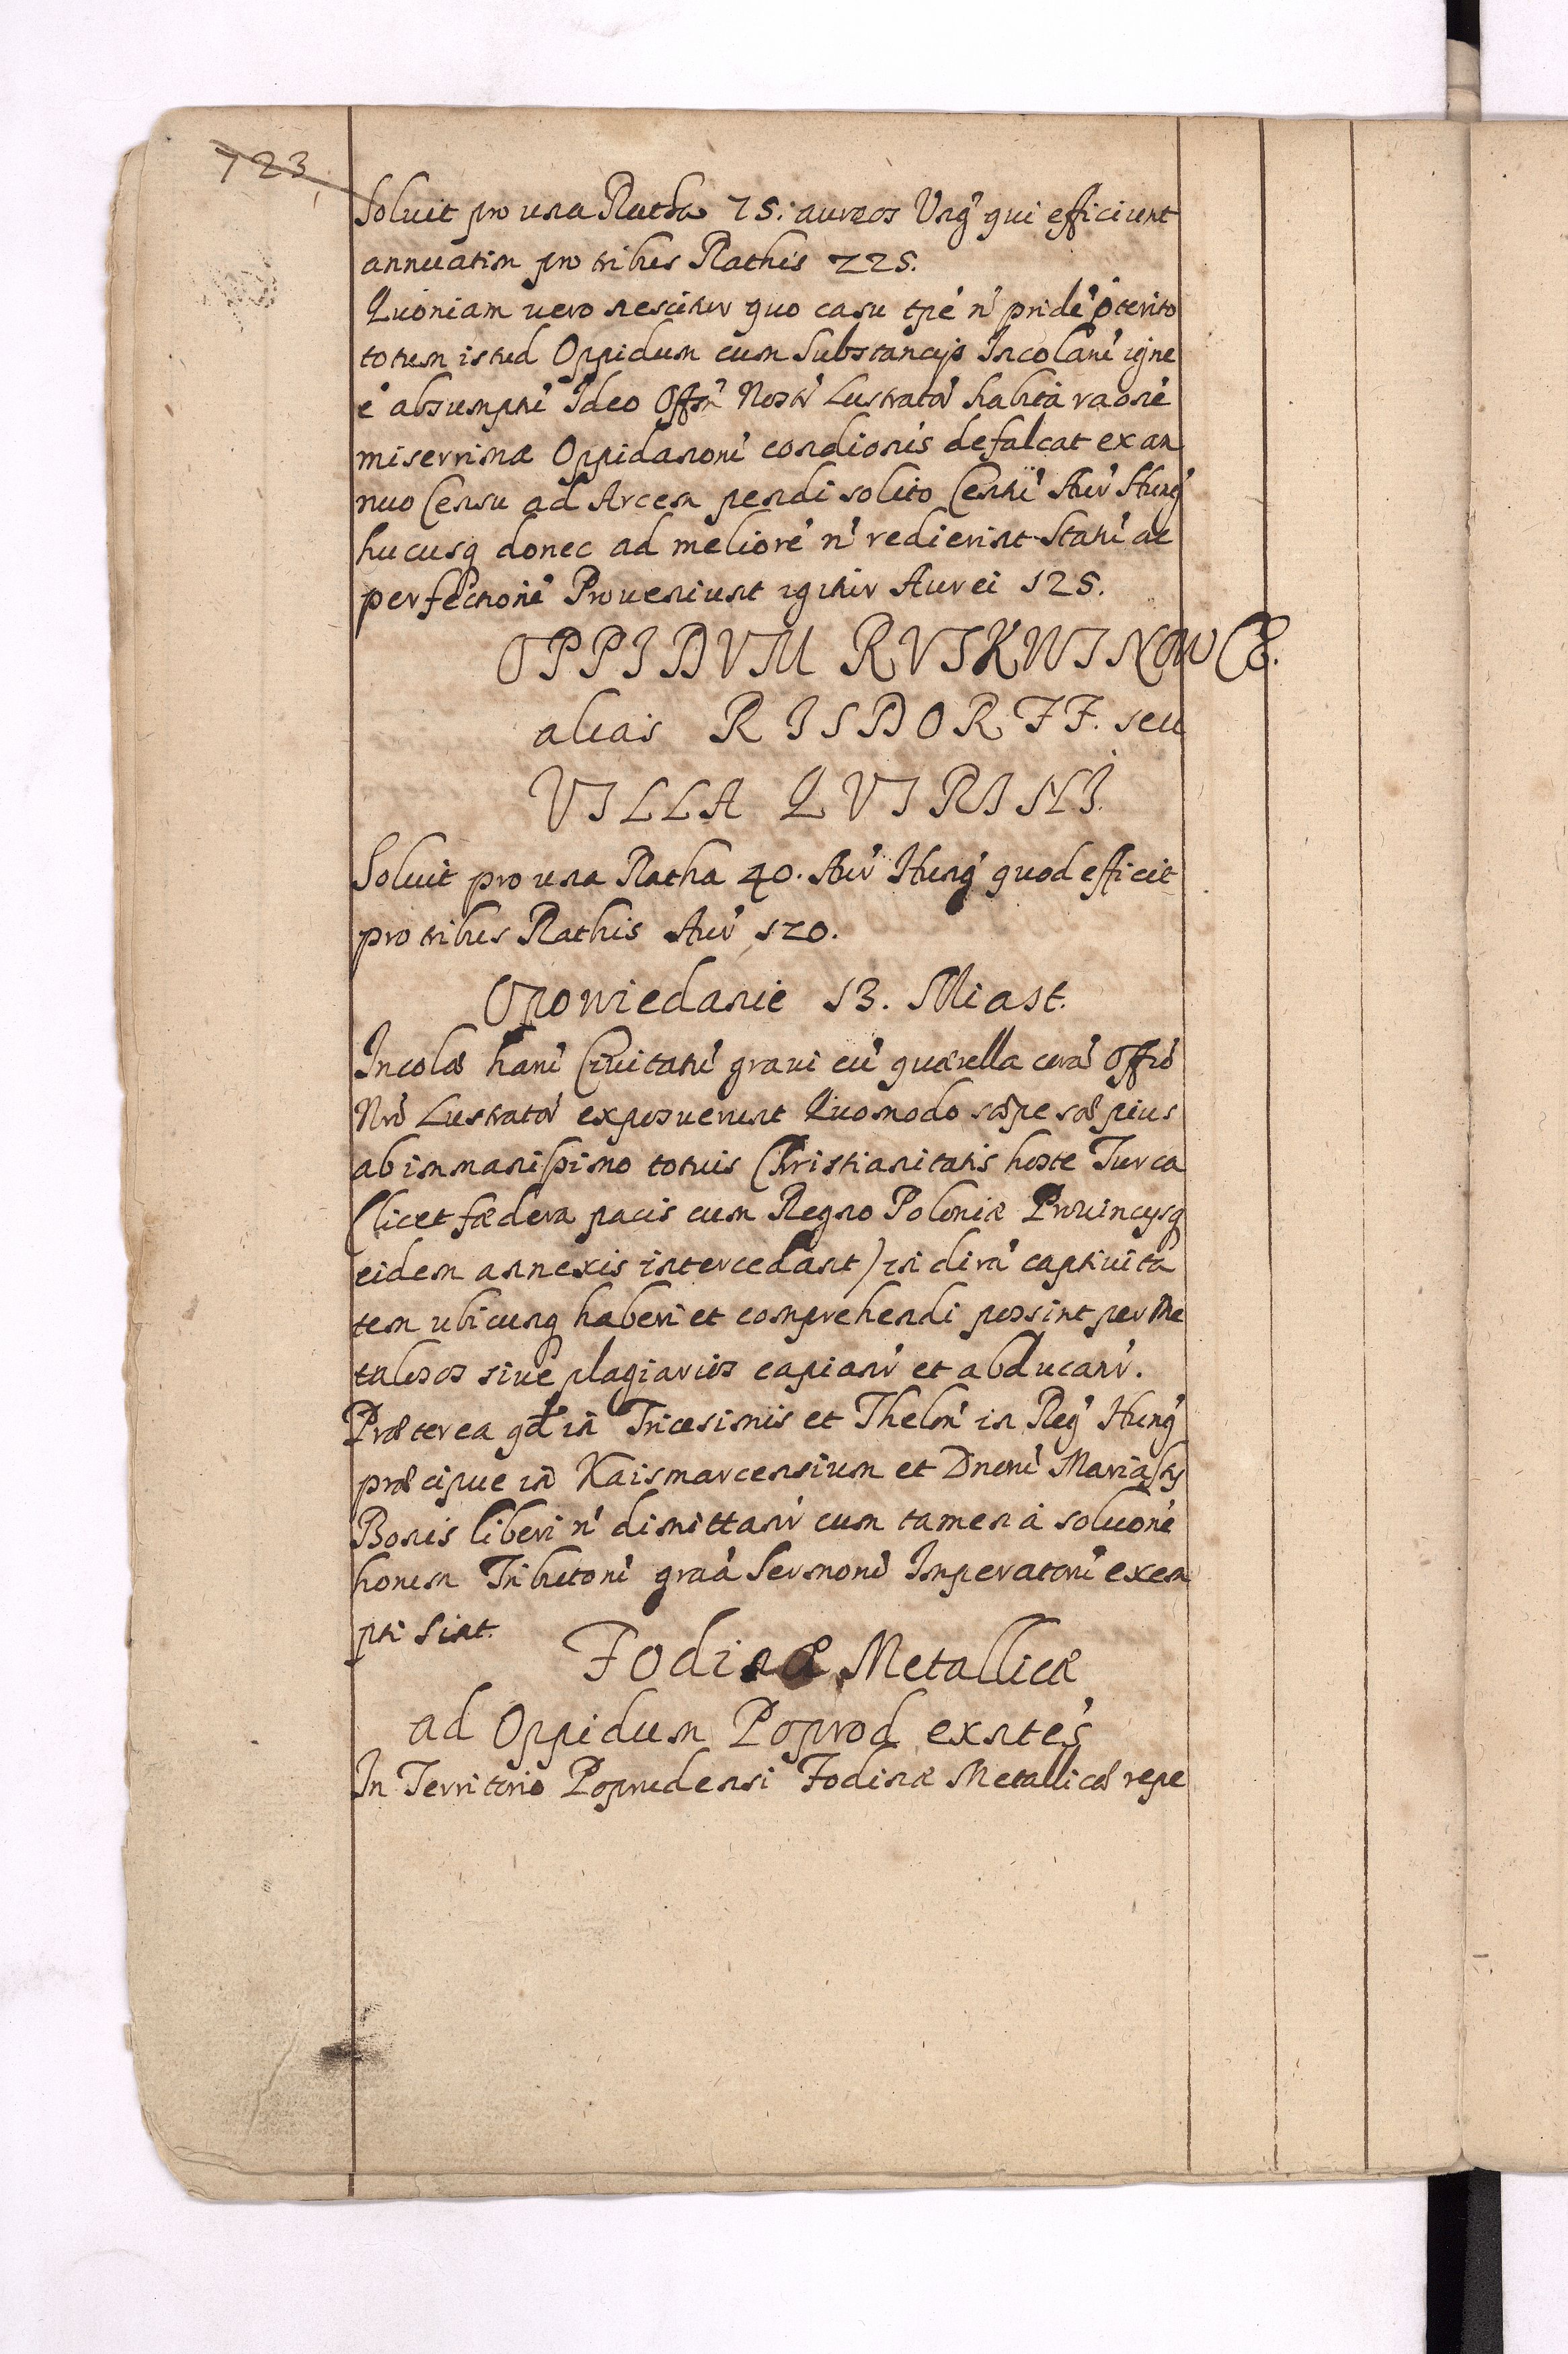 723
Soluit pro una Ratha 75. aureos Ung' qui efficiunt
annuatim pro tribus Rathis 225.
Quoniam vero nescitur quo casu tpe' n' pride' pterito
totum istud Oppidum cum Substancijs Incolaru' igne
e' absumptu' Ideo Offm' Nostr' Lustrator' habita raone'
miserrimæ Oppidanoru' condionis defalcat ex an
nuo Censu ad Arcem pendi solito Centu' Aur' Hung'
hucusq donec ad meliore' n' redierint Statu' ac
perfectione' Proueniunt igitur Aurei 125.
OPPIDVM RVSKWINOWCE.
alias RISDORFF. seu
VILLA QVIRINI.
Soluit pro una Ratha 40. Aur' Hung' quod efficit
pro tribus Rathis Aur' 120.
Opowiedanie 13. Miast.
Incolæ haru' Ciuitatu' graui cu' quærella cora' Offio'
Nro' Lustrator' exposuerunt Quomodo sæpe sæpius
ab immanissimo totuis Christianitatis hoste Turca
(licet fædera pacis cum Regno Poloniæ Prouincysq
eidem annexis intercedant) in dira' captiuita
tem ubicunq haberi et comprehendi possint per Me
tulesos siue plagiarios capiant' et abducant'.
Præterea qd in Tricesimis et Thelon' in Reg' Hung'
præcipue in Kaismarcensium et Dnoru' Mariassy
Bonis liberi n' dimittant' cum tamen a solucone'
horum Tributoru' graa' Sermonu' Imperatoru' exem
pti sint.
Fodinæ Metallicæ
ad Oppidum Poprod exntes'
In Territorio Poprudensi Fodinæ Metallicæ repe